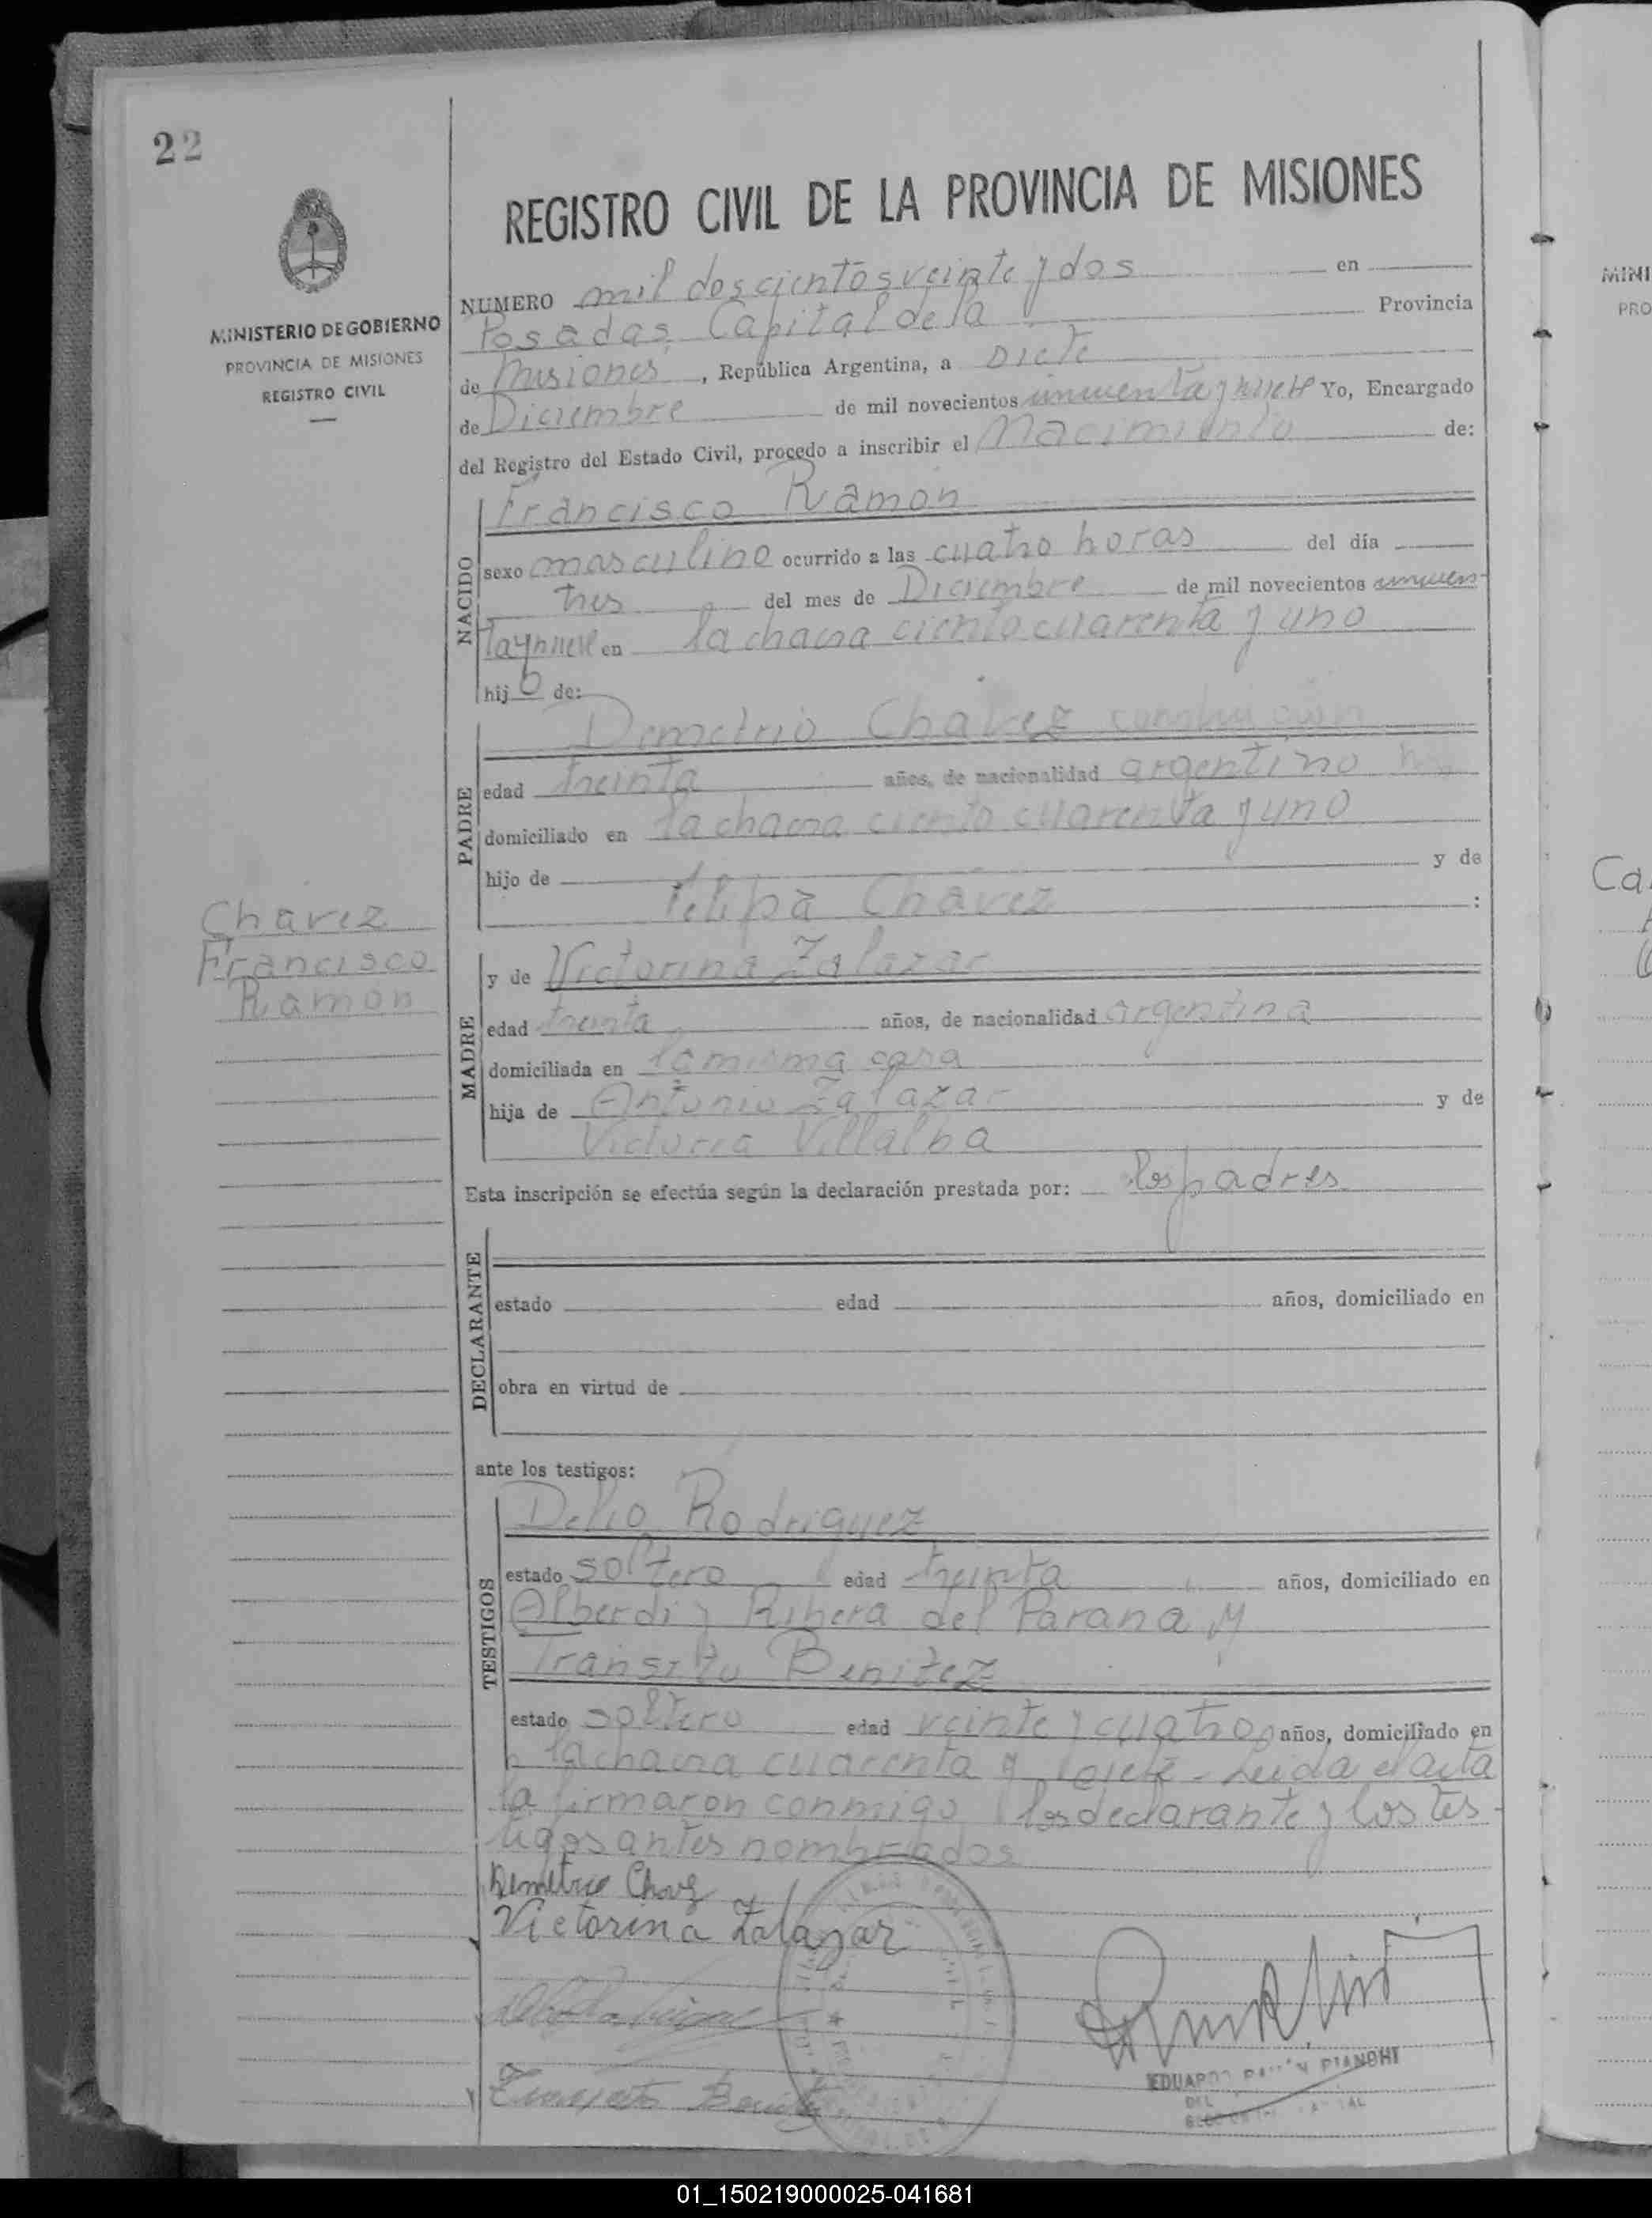 22
MINISTERIO DE GOBIERNO
PROVINCIA DE MISIONES
REGISTRO CIVIL
REGISTRO CIVIL DE LA PROVINCIA DE MISIONES
NUMERO mil doscientos veinte y dos en
Posadas, Capital de la Provincia
de Misiones, República Argentina, a Siete
de Diciembre de mil novecientos cincuenta y nueve Yo, Encargado
del Registro del Estado Civil, procedo a inscribir el Nacimiento de:
NACIDO
Francisco Ramon
sexo masculino ocurrido a las cuatro horas del día
tres del mes de Diciembre de mil novecientos cincuen-
ta y nueve en la chacra ciento cuarenta y uno
hijo de:
PADRE
Demetrio Chavez
edad treinta años, de nacionalidad argentino
domiciliado en la chacra ciento cuarenta y uno
hijo de y de
Felipa Chavez :
Chavez
Francisco
Ramón
MADRE
y de Victorina Zalazar
edad treinta años, de nacionalidad argentina
domiciliada en la misma casa
hija de Antonio Zalazar y de
Victoria Villalba
Esta inscripción se efectúa según la declaración prestada por: los padres
DECLARANTE
estado edad años, domiciliado en
obra en virtud de
ante los testigos:
TESTIGOS
Delio Rodriguez
estado soltero edad treinta años, domiciliado en
Alberdi y Ribera del Parana y
Transito Benitez
estado soltero edad veinte y cuatro años, domiciliado en
la chacra cuarenta y siete - Leida el acta
la firmaron conmigo los declarante y los tes-
tigos antes nombrados
Demetrio Chavez
Victorina Zalazar
Benitez
EDUARDO PIANOHI
01_150219000025-041681
MINI
PRO
Ca